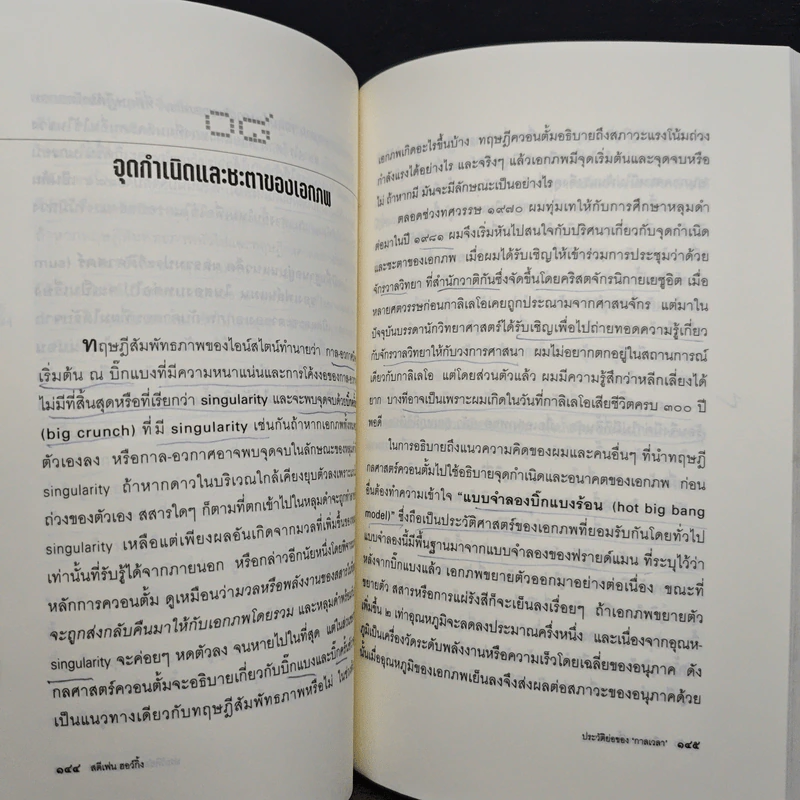 ๐๘
จุดกำเนิดและชะตาของเอกภพ
ทฤษฎีสัมพัทธภาพของไอน์สไตน์ทำนายว่า กาล-อวกาศ
เริ่มต้น ณ บิ๊กแบงที่มีความหนาแน่นและการโค้งงอของกาล-อวกาศ
ไม่มีที่สิ้นสุดหรือที่เรียกว่า singularity และจะพบจุดจบด้วย
(big crunch) ที่มี singularity เช่นกันถ้าหากเอกภพทั้งหมด
ตัวเองลง หรือกาล-อวกาศอาจพบจุดจบในลักษณะของ
singularity ถ้าหากดาวในบริเวณใกล้เคียงยุบตัวลงเพราะ
ถ่วงของตัวเอง สสารใดๆ ก็ตามที่ตกเข้าไปในหลุมดำจะถูก
singularity เหลือแต่เพียงผลอันเกิดจากมวลที่เพิ่มขึ้นของ
เท่านั้นที่รับรู้ได้จากภายนอก หรือกล่าวอีกนัยหนึ่งโดย
หลักการควอนตั้ม ดูเหมือนว่ามวลหรือพลังงานของสสาร
จะถูกส่งกลับคืนมาให้กับเอกภพโดยรวม และหลุมดำ
singularity จะค่อยๆ หดตัวลง จนหายไปในที่สุด แต่
กลศาสตร์ควอนตั้มจะอธิบายเกี่ยวกับบิ๊กแบงและบิ๊กครั้นช์
เป็นแนวทางเดียวกับทฤษฎีสัมพัทธภาพหรือไม่
๑๔๔ สตีเฟน ฮอว์กิ้ง
เอกภพเกิดอะไรขึ้นบ้าง ทฤษฎีควอนตั้มอธิบายถึงสภาวะแรงโน้มถ่วง
กำลังแรงได้อย่างไร และจริงๆ แล้วเอกภพมีจุดเริ่มต้นและจุดจบหรือ
ไม่ ถ้าหากมี มันจะมีลักษณะเป็นอย่างไร
ตลอดช่วงทศวรรษ ๑๙๗๐ ผมทุ่มเทให้กับการศึกษาหลุมดำ
ต่อมาในปี ๑๙๘๑ ผมจึงเริ่มหันไปสนใจกับปริศนาเกี่ยวกับจุดกำเนิด
และชะตาของเอกภพ เมื่อผมได้รับเชิญให้เข้าร่วมการประชุมว่าด้วย
จักรวาลวิทยา ที่สำนักวาติกันซึ่งจัดขึ้นโดยคริสตจักรนิกายเยซูอิต เมื่อ
หลายศตวรรษก่อนกาลิเลโอเคยถูกประณามจากศาสนจักร แต่มาใน
ปัจจุบันบรรดานักวิทยาศาสตร์ได้รับเชิญเพื่อไปถ่ายทอดความรู้เกี่ยว
กับจักรวาลวิทยาให้กับวงการศาสนา ผมไม่อยากตกอยู่ในสถานการณ์
เดียวกับกาลิเลโอ แต่โดยส่วนตัวแล้ว ผมมีความรู้สึกว่าหลีกเลี่ยงได้
ยาก บางทีอาจเป็นเพราะผมเกิดในวันที่กาลิเลโอเสียชีวิตครบ ๓๐๐ ปี
พอดี
ในการอธิบายถึงแนวความคิดของผมและคนอื่นๆ ที่นำทฤษฎี
กลศาสตร์ควอนตั้มไปใช้อธิบายจุดกำเนิดและอนาคตของเอกภพ ก่อน
อื่นต้องทำความเข้าใจ "แบบจำลองบิ๊กแบงร้อน (hot big bang
model)" ซึ่งถือเป็นประวัติศาสตร์ของเอกภพที่ยอมรับกันโดยทั่วไป
แบบจำลองนี้มีพื้นฐานมาจากแบบจำลองของฟรายด์แมน ที่ระบุไว้ว่า
หลังจากบิ๊กแบงแล้ว เอกภพขยายตัวออกมาอย่างต่อเนื่อง ขณะที่
ขยายตัว สสารหรือการแผ่รังสีก็จะเย็นลงเรื่อยๆ ถ้าเอกภพขยายตัว
เพิ่มขึ้น ๒ เท่าอุณหภูมิจะลดลงประมาณครึ่งหนึ่ง และเนื่องจากอุณห-
ภูมิเป็นเครื่องวัดระดับพลังงานหรือความเร็วโดยเฉลี่ยของอนุภาค ดัง
นั้นเมื่ออุณหภูมิของเอกภพเย็นลงจึงส่งผลต่อสภาวะของอนุภาคด้วย
ประวัติย่อของ 'กาลเวลา' ๑๔๕